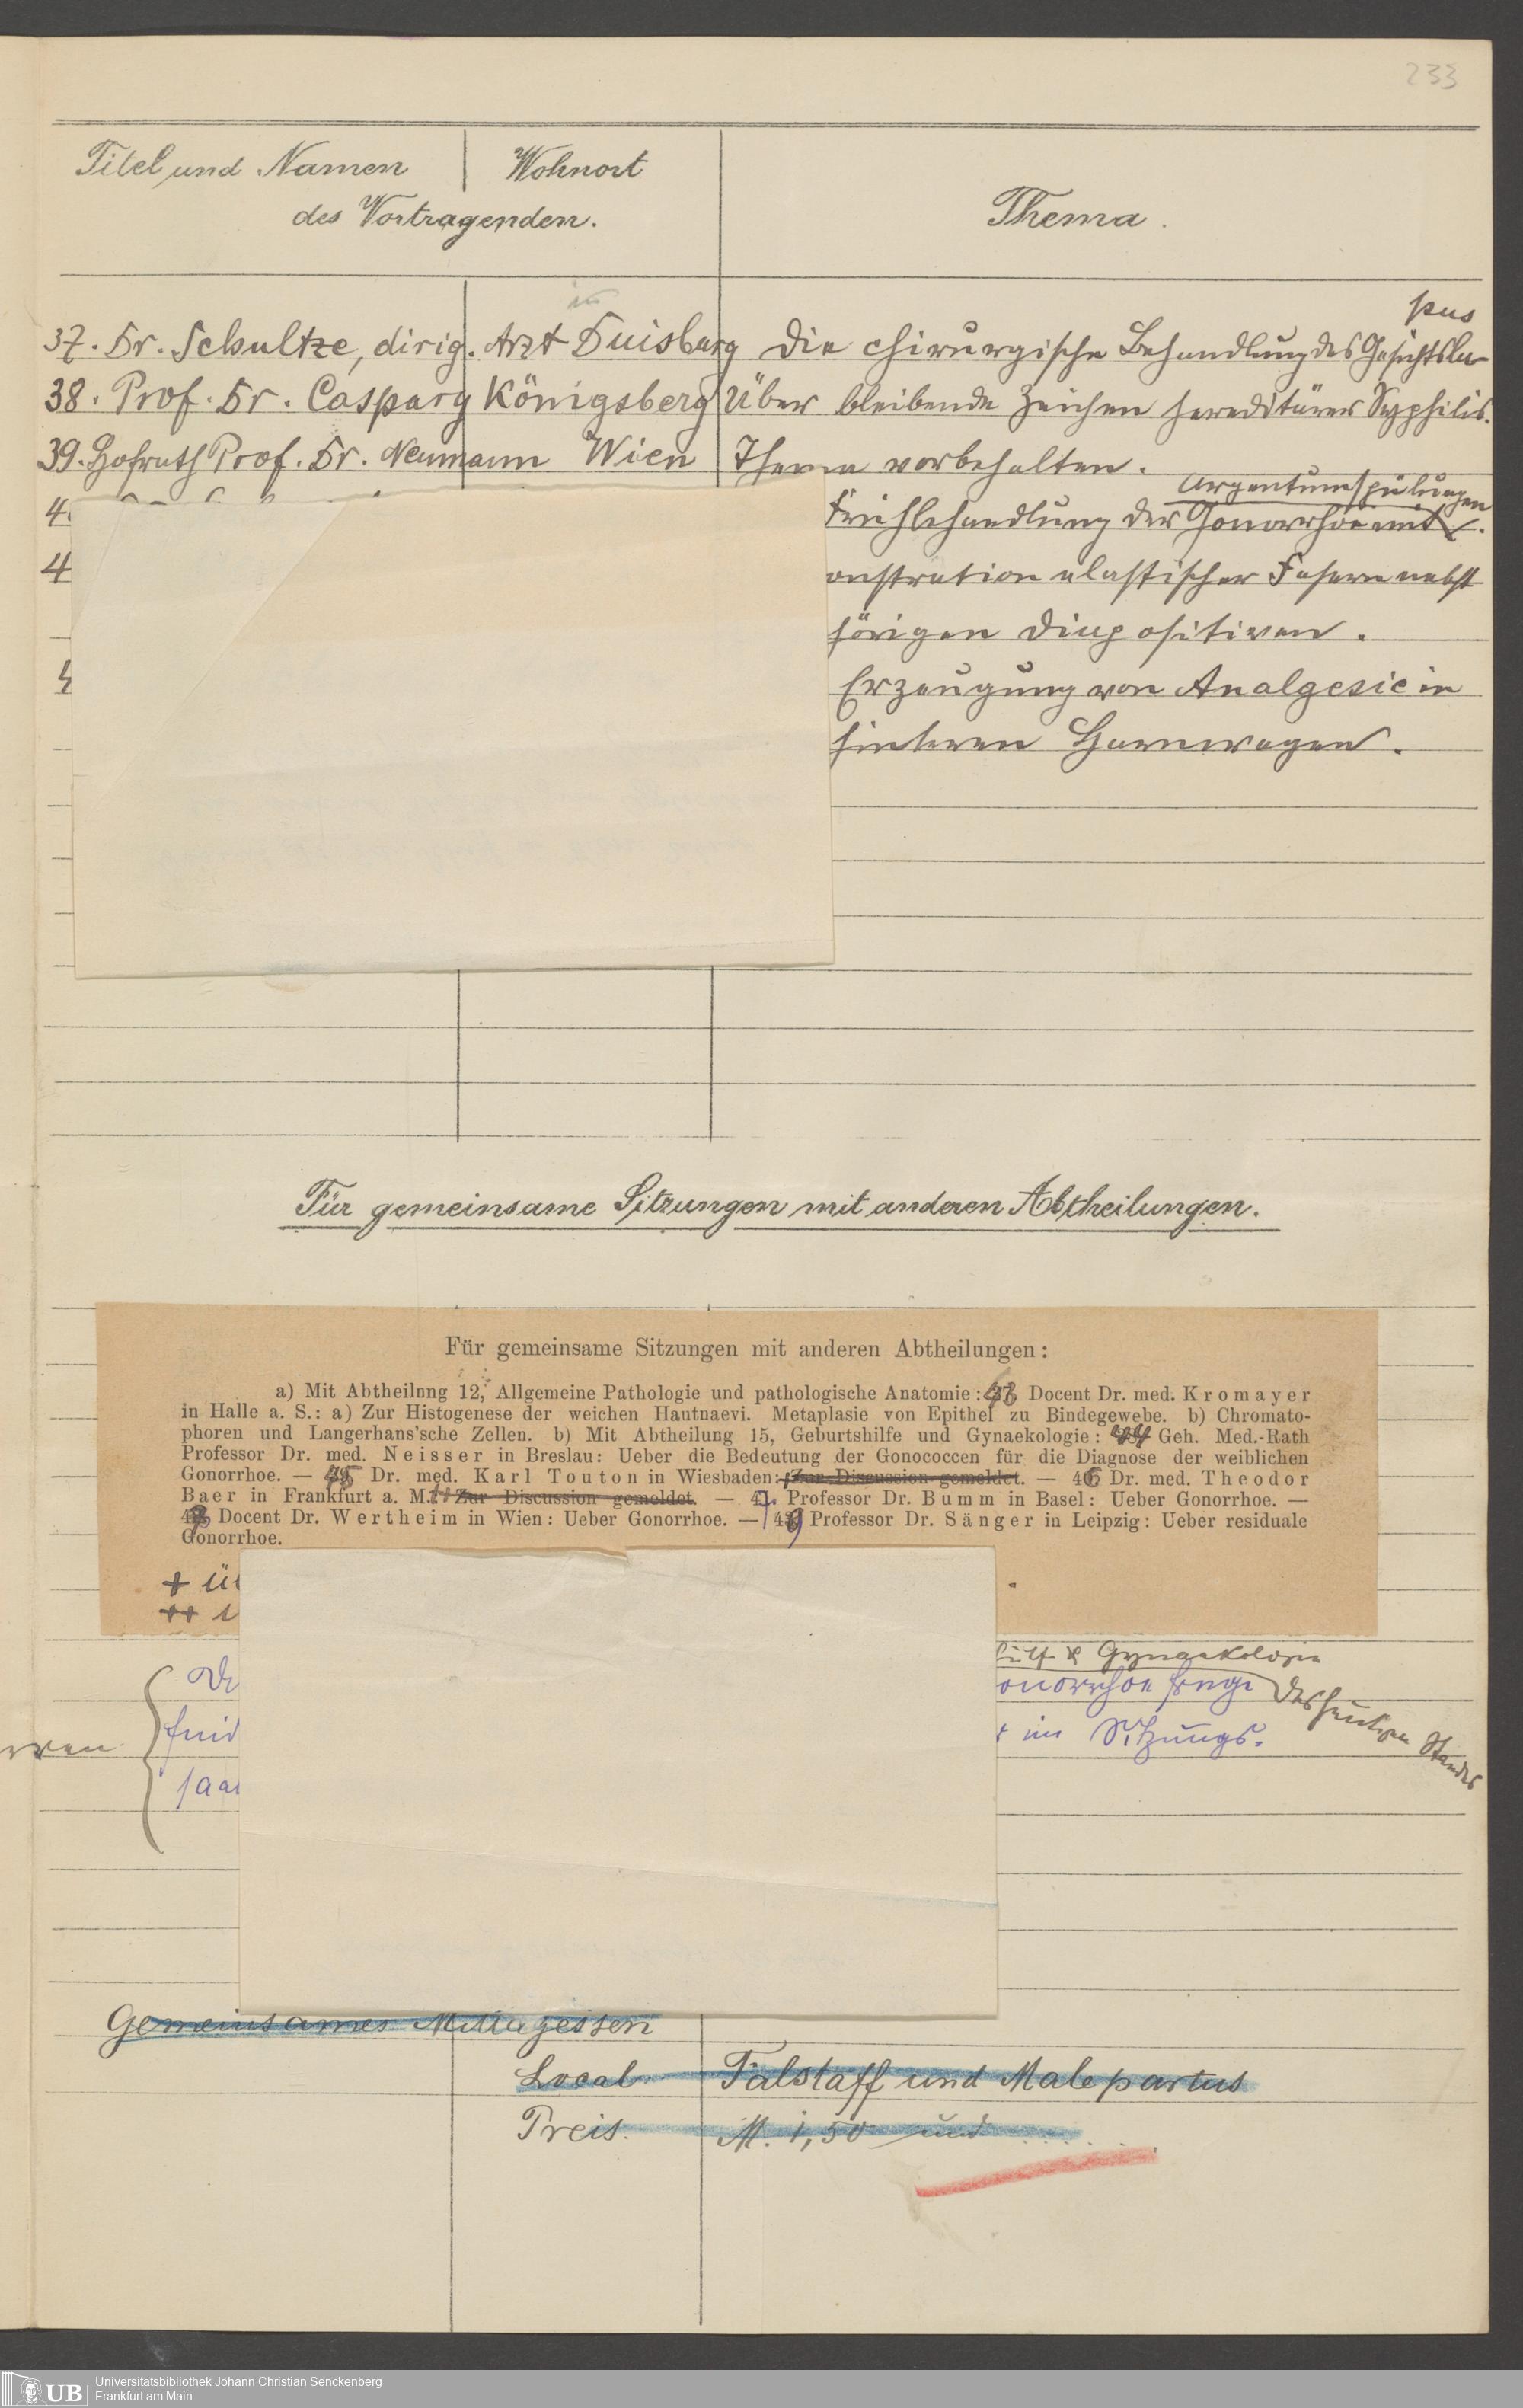 233
Titel und Namen
Wohnort
des Vortragenden.
Thema.
pus
37. Dr. Schultze, dirig. Arzt in Duisburg Die chirurgische Behandlung des Gesichtslu-
38. Prof. Dr. Caspary Königsberg Über bleibende Zeichen hereditärer Syphilis.
39. Hofrath Prof. Dr. Neumann Wien Thema vorbehalten.
Argentumspülungen
4 Frühbehandlung der Gonorrhoe mit
4 onstration elastischer Fasern nebst
hörigen Diapositiven.
4 Erzeugung von Analgesie in
hinteren Harnwegen.
Für gemeinsame Sitzungen mit anderen Abtheilungen.
Für gemeinsame Sitzungen mit anderen Abtheilungen:
a) Mit Abtheilnng 12, Allgemeine Pathologie und pathologische Anatomie: Docent Dr. med. Kromayer
in Halle a. S.: a) Zur Histogenese der weichen Hautnaevi. Metaplasie von Epithel zu Bindegewebe. b) Chromato-
phoren und Langerhans'sche Zellen. b) Mit Abtheilung 15, Geburtshilfe und Gynaekologie: Geh. Med.-Rath
Professor Dr. med. Neisser in Breslau: Ueber die Bedeutung der Gonococcen für die Diagnose der weiblichen
Gonorrhoe. — Dr. med. Karl Touton in Wiesbaden: + Zur Discussion gemeldet. — 46 Dr. med. Theodor
Baer in Frankfurt a. M.: ++ Zur Discussion gemeldet. — 47. Professor Dr. Bumm in Basel: Ueber Gonorrhoe. —
48 Docent Dr. Wertheim in Wien: Ueber Gonorrhoe. — 49 Professor Dr. Sänger in Leipzig: Ueber residuale
Gonorrhoe.
+ Ü
++
& Gynaekologie
onorrhoe frage des heutigen Standes
im Sitzungs.
saa
Gemeinsames Mittagessen
Local Falstaff und Malepartus
Preis. M. 1,50 und ......
UB Universitätsbibliothek Johann Christian Senckenberg
Frankfurt am Main